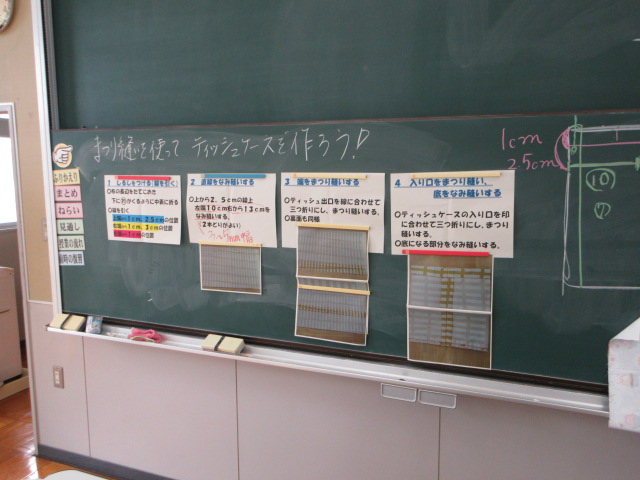 まつり縫いを使って ティッシュケースを作ろう!
ふりかえり
まとめ
ねらい
見通し
授業の流れ
前時の復習
1 しるしをつける(線を引く)
〇布の長辺をたてにおき
下にわがくるように中表に折る
〇線を引く
上端から1cm、2.5cmの位置
右端から1cm、3cmの位置
左端から1cmの位置
2 直線をなみ縫いする
〇上から2.5cmの線上
右端10cm右から13cmを
なみ縫いする。
(2本どりがよい)
3 端をまつり縫いする
〇ティッシュ出口を線に合わせて
三つ折りにし、まつり縫いする。
〇裏面も同様
4 入り口をまつり縫い、
底をなみ縫いする
〇ティッシュケースの入り口を印
に合わせて三つ折りにし、まつり
縫いする。
〇底になる部分をなみ縫いする。
1cm
2.5cm
⑩